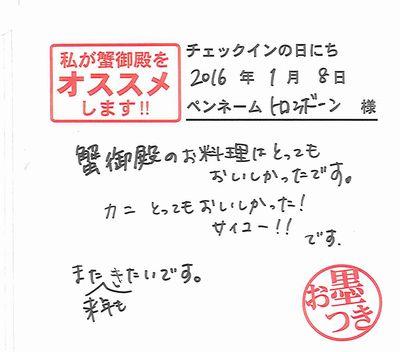 私が蟹御殿を
オススメ
します!!
チェックインの日にち
2016 年 1 月 8 日
ペンネーム トロンボーン 様
蟹御殿のお料理はとっても
おいしかったです。
カニ とってもおいしかった!
サイコー!!
です.
またきたいです。
来年も
お墨つき